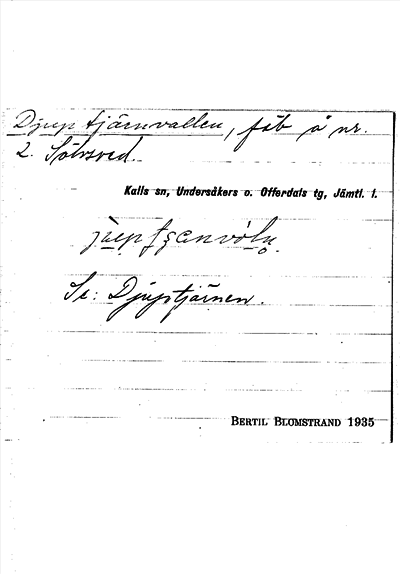 Djuptjärnvallen, fäb å nr.
2. Sölvsved.
Kalls sn, Undersåkers o. Offerdals tg, Jämtl. l.
Se: Djuptjärnen.
BERTIL BLOMSTRAND 1935